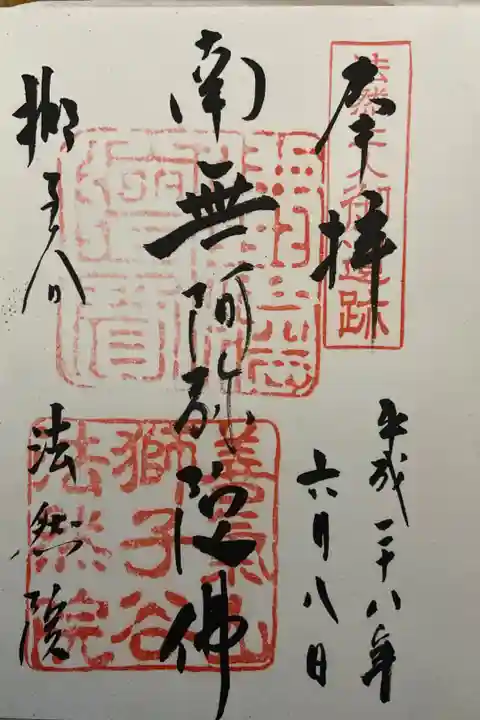 法然上人御遺跡
奉拝
平成二十八年
六月八日
南無阿弥陀佛
獅子谷
法然院
善氣山
獅子谷
法然院